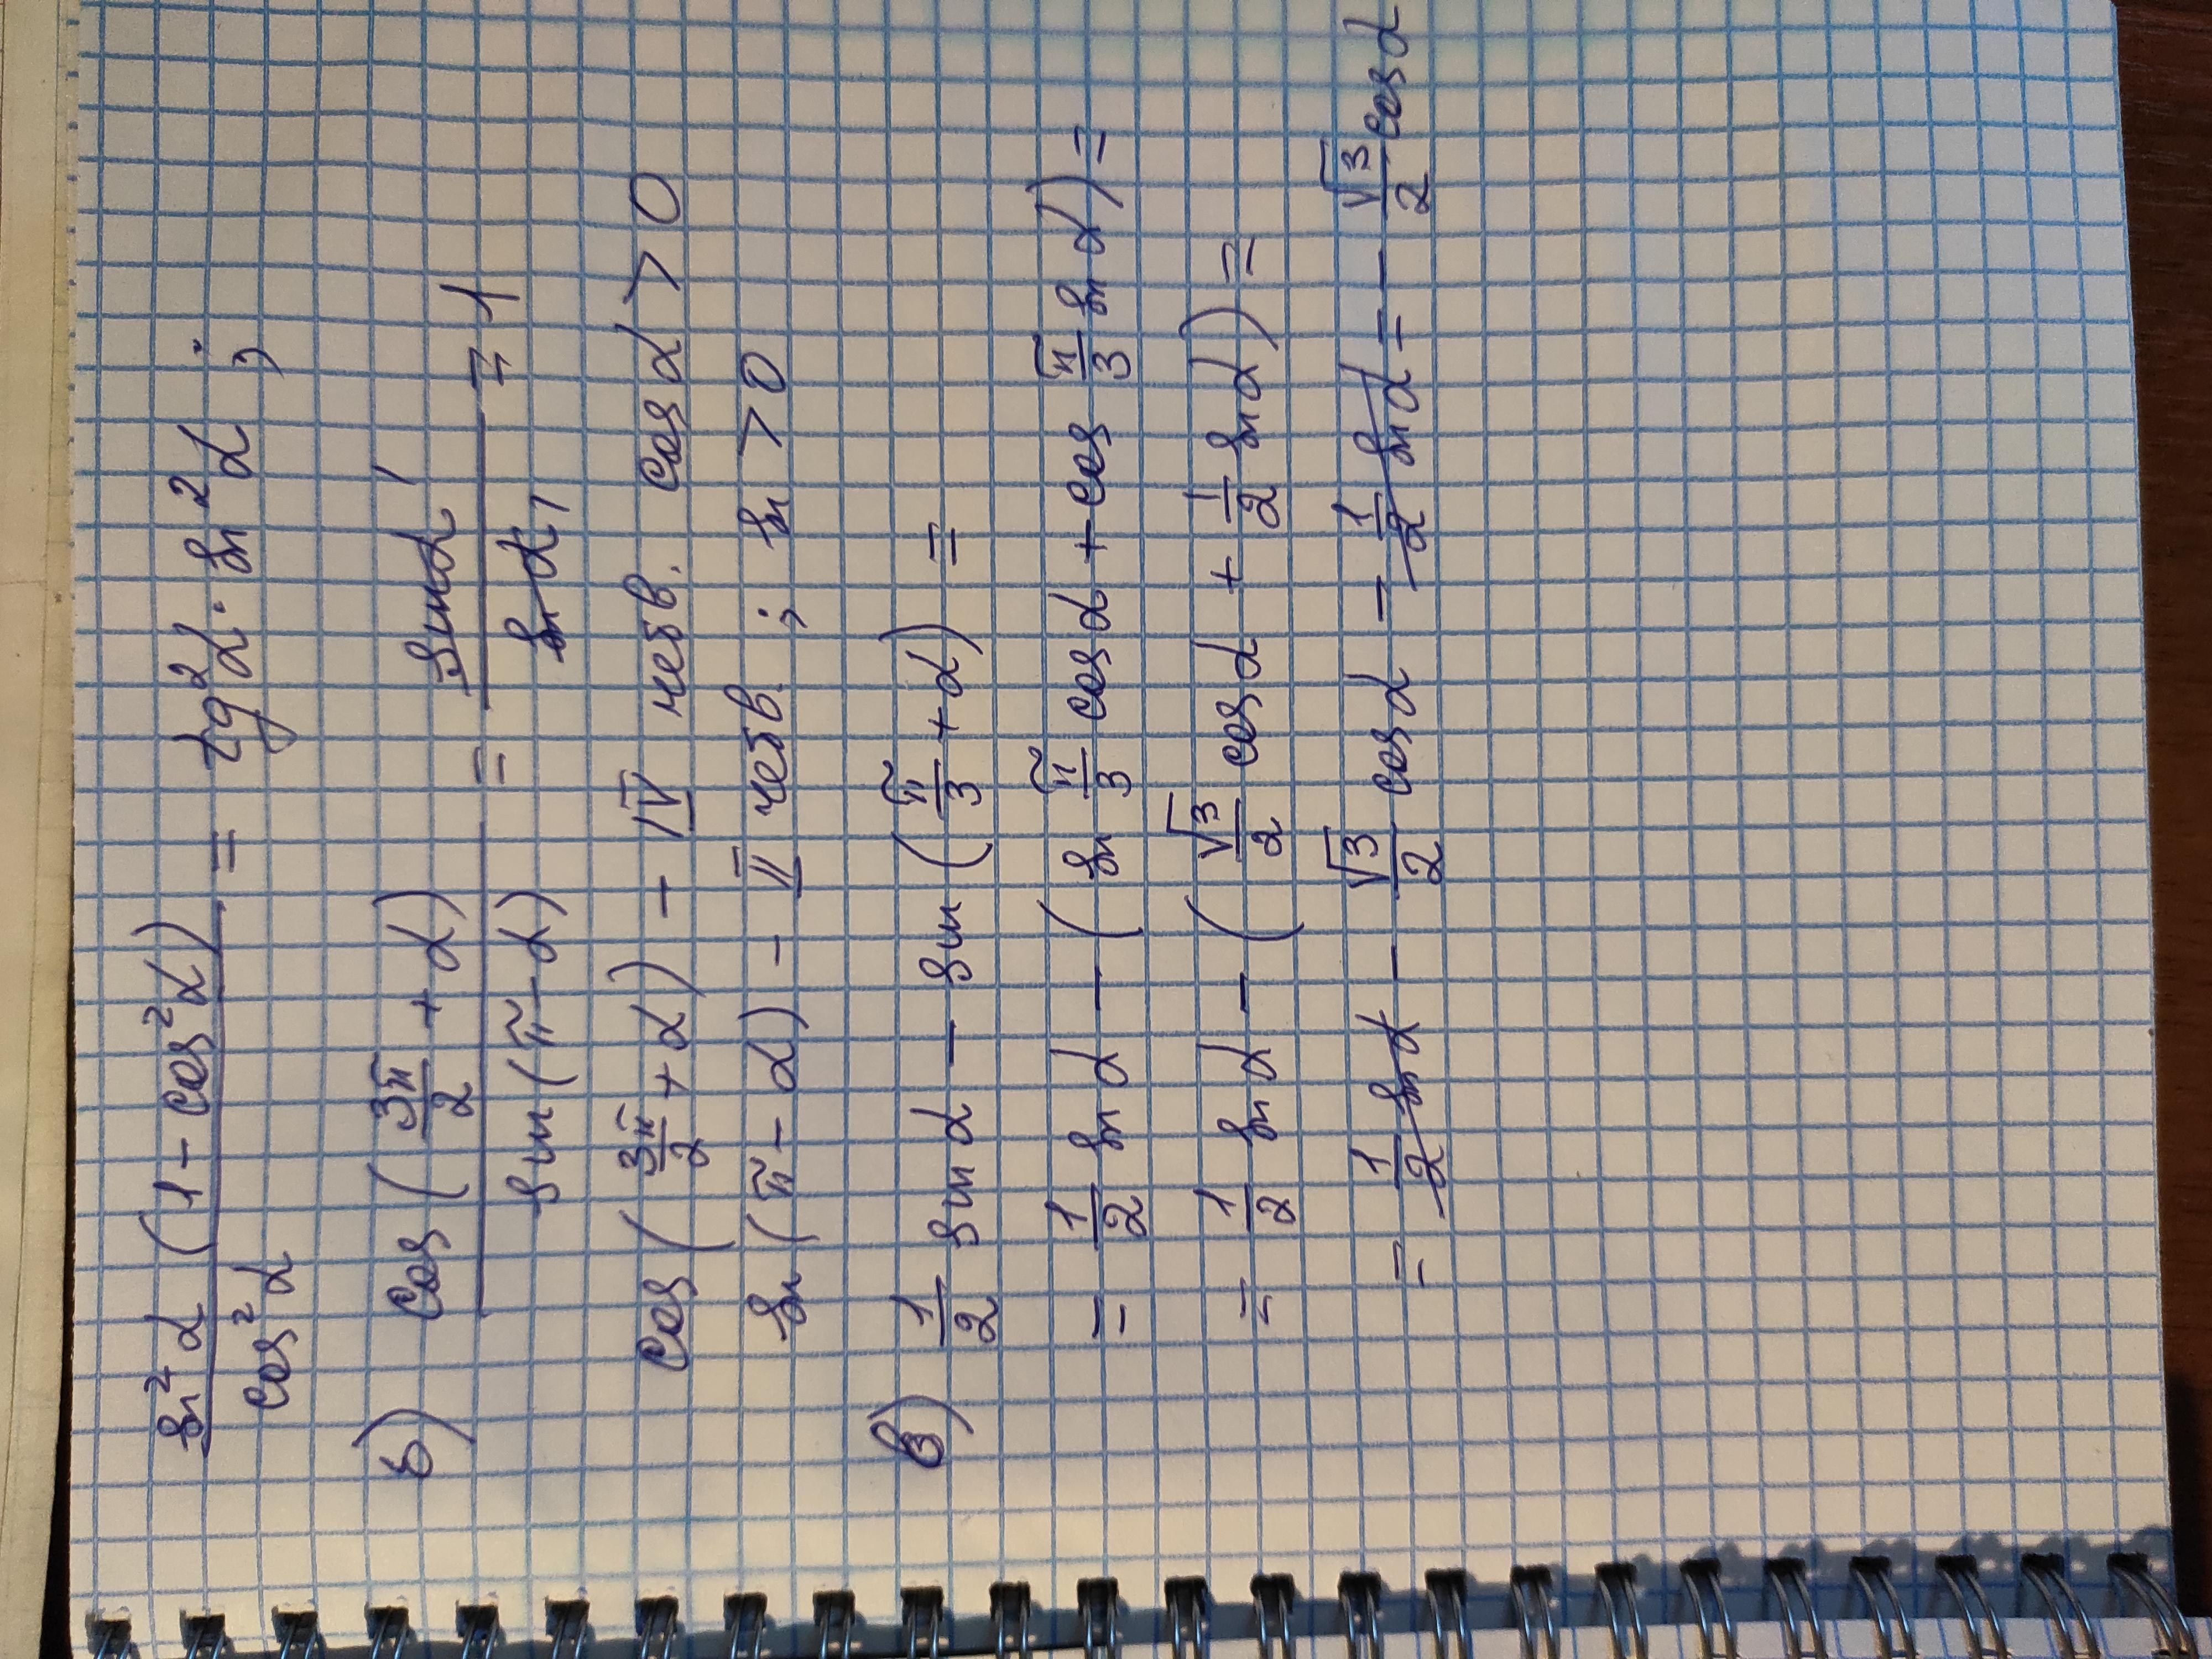 sin²α (1 - cos²α) / cos²α = tg²α · sin²α ;
б) cos(3π/2 + α) / sin(π - α) = sinα / sinα = 1
cos(3π/2 + α) - IV четв. cosα > 0
sin(π - α) - II четв. ; sin > 0
в) 1/2 sinα - sin(π/3 + α) =
= 1/2 sinα - (sin π/3 cosα + cos π/3 sinα) =
= 1/2 sinα - (√3/2 cosα + 1/2 sinα) =
= 1/2 sinα - √3/2 cosα - 1/2 sinα = - √3/2 cosα